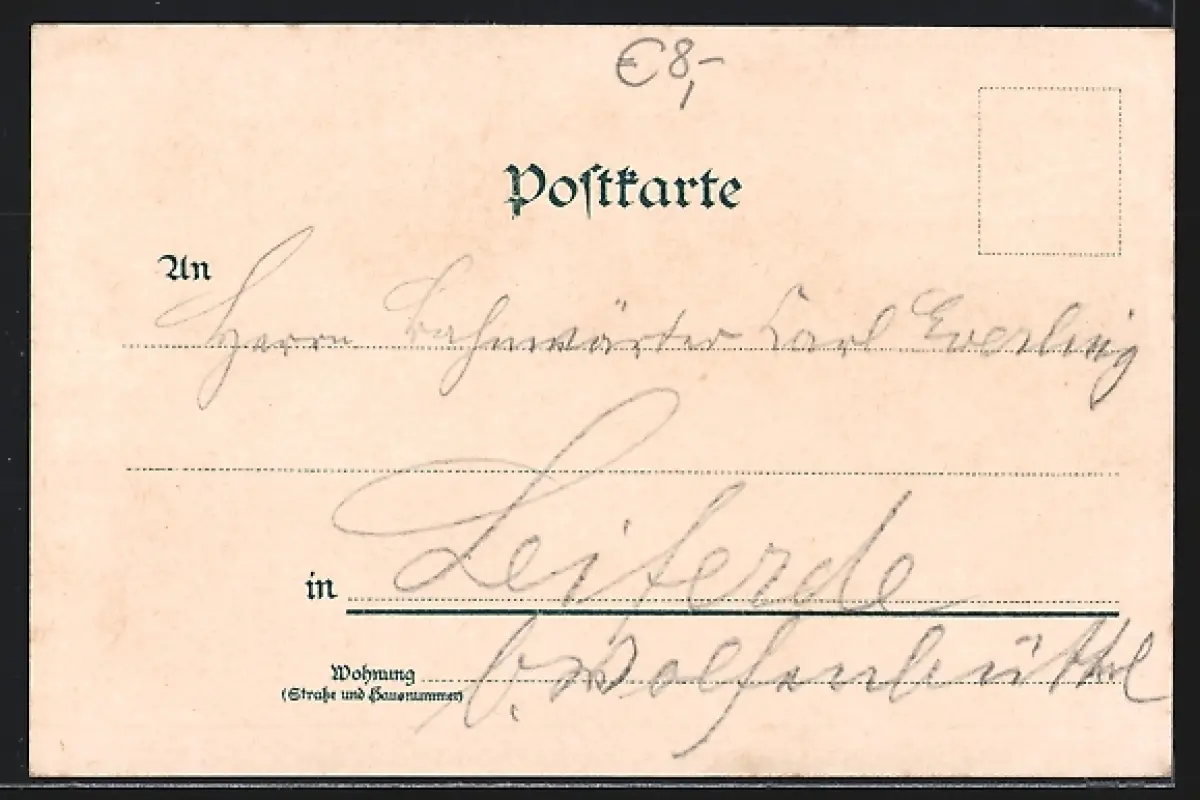 €8,-
Postkarte
An
Herrn Bahnwärter Karl Everling
in Leiferde
Wohnung
(Straße und Hausnummer)
b. Wolfenbüttel